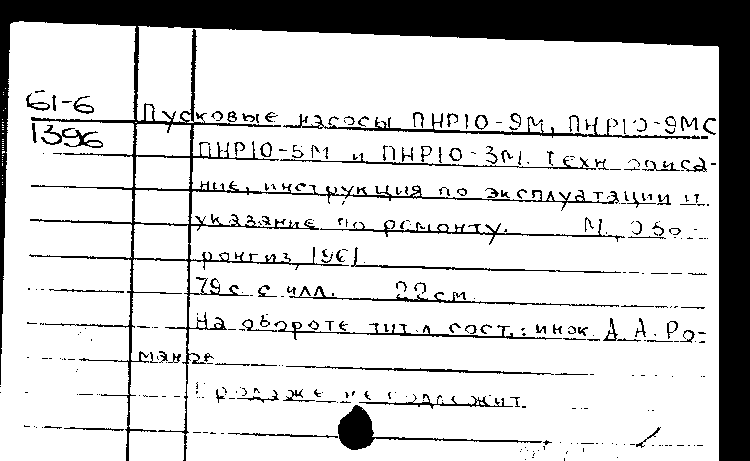 61-6
1396
Пусковые насосы ПНР10-9М, ПНР10-9МС
ПНР10-5М и ПНР10-3М. Техн описа-
ние, инструкция по эксплуатации и
указание по ремонту. М., Обо-
ронгиз, 1961.
79 с. с илл. 22 см.
На обороте тит. л сост.: инж. А. А. Ро-
манов
Продаже не подлежит